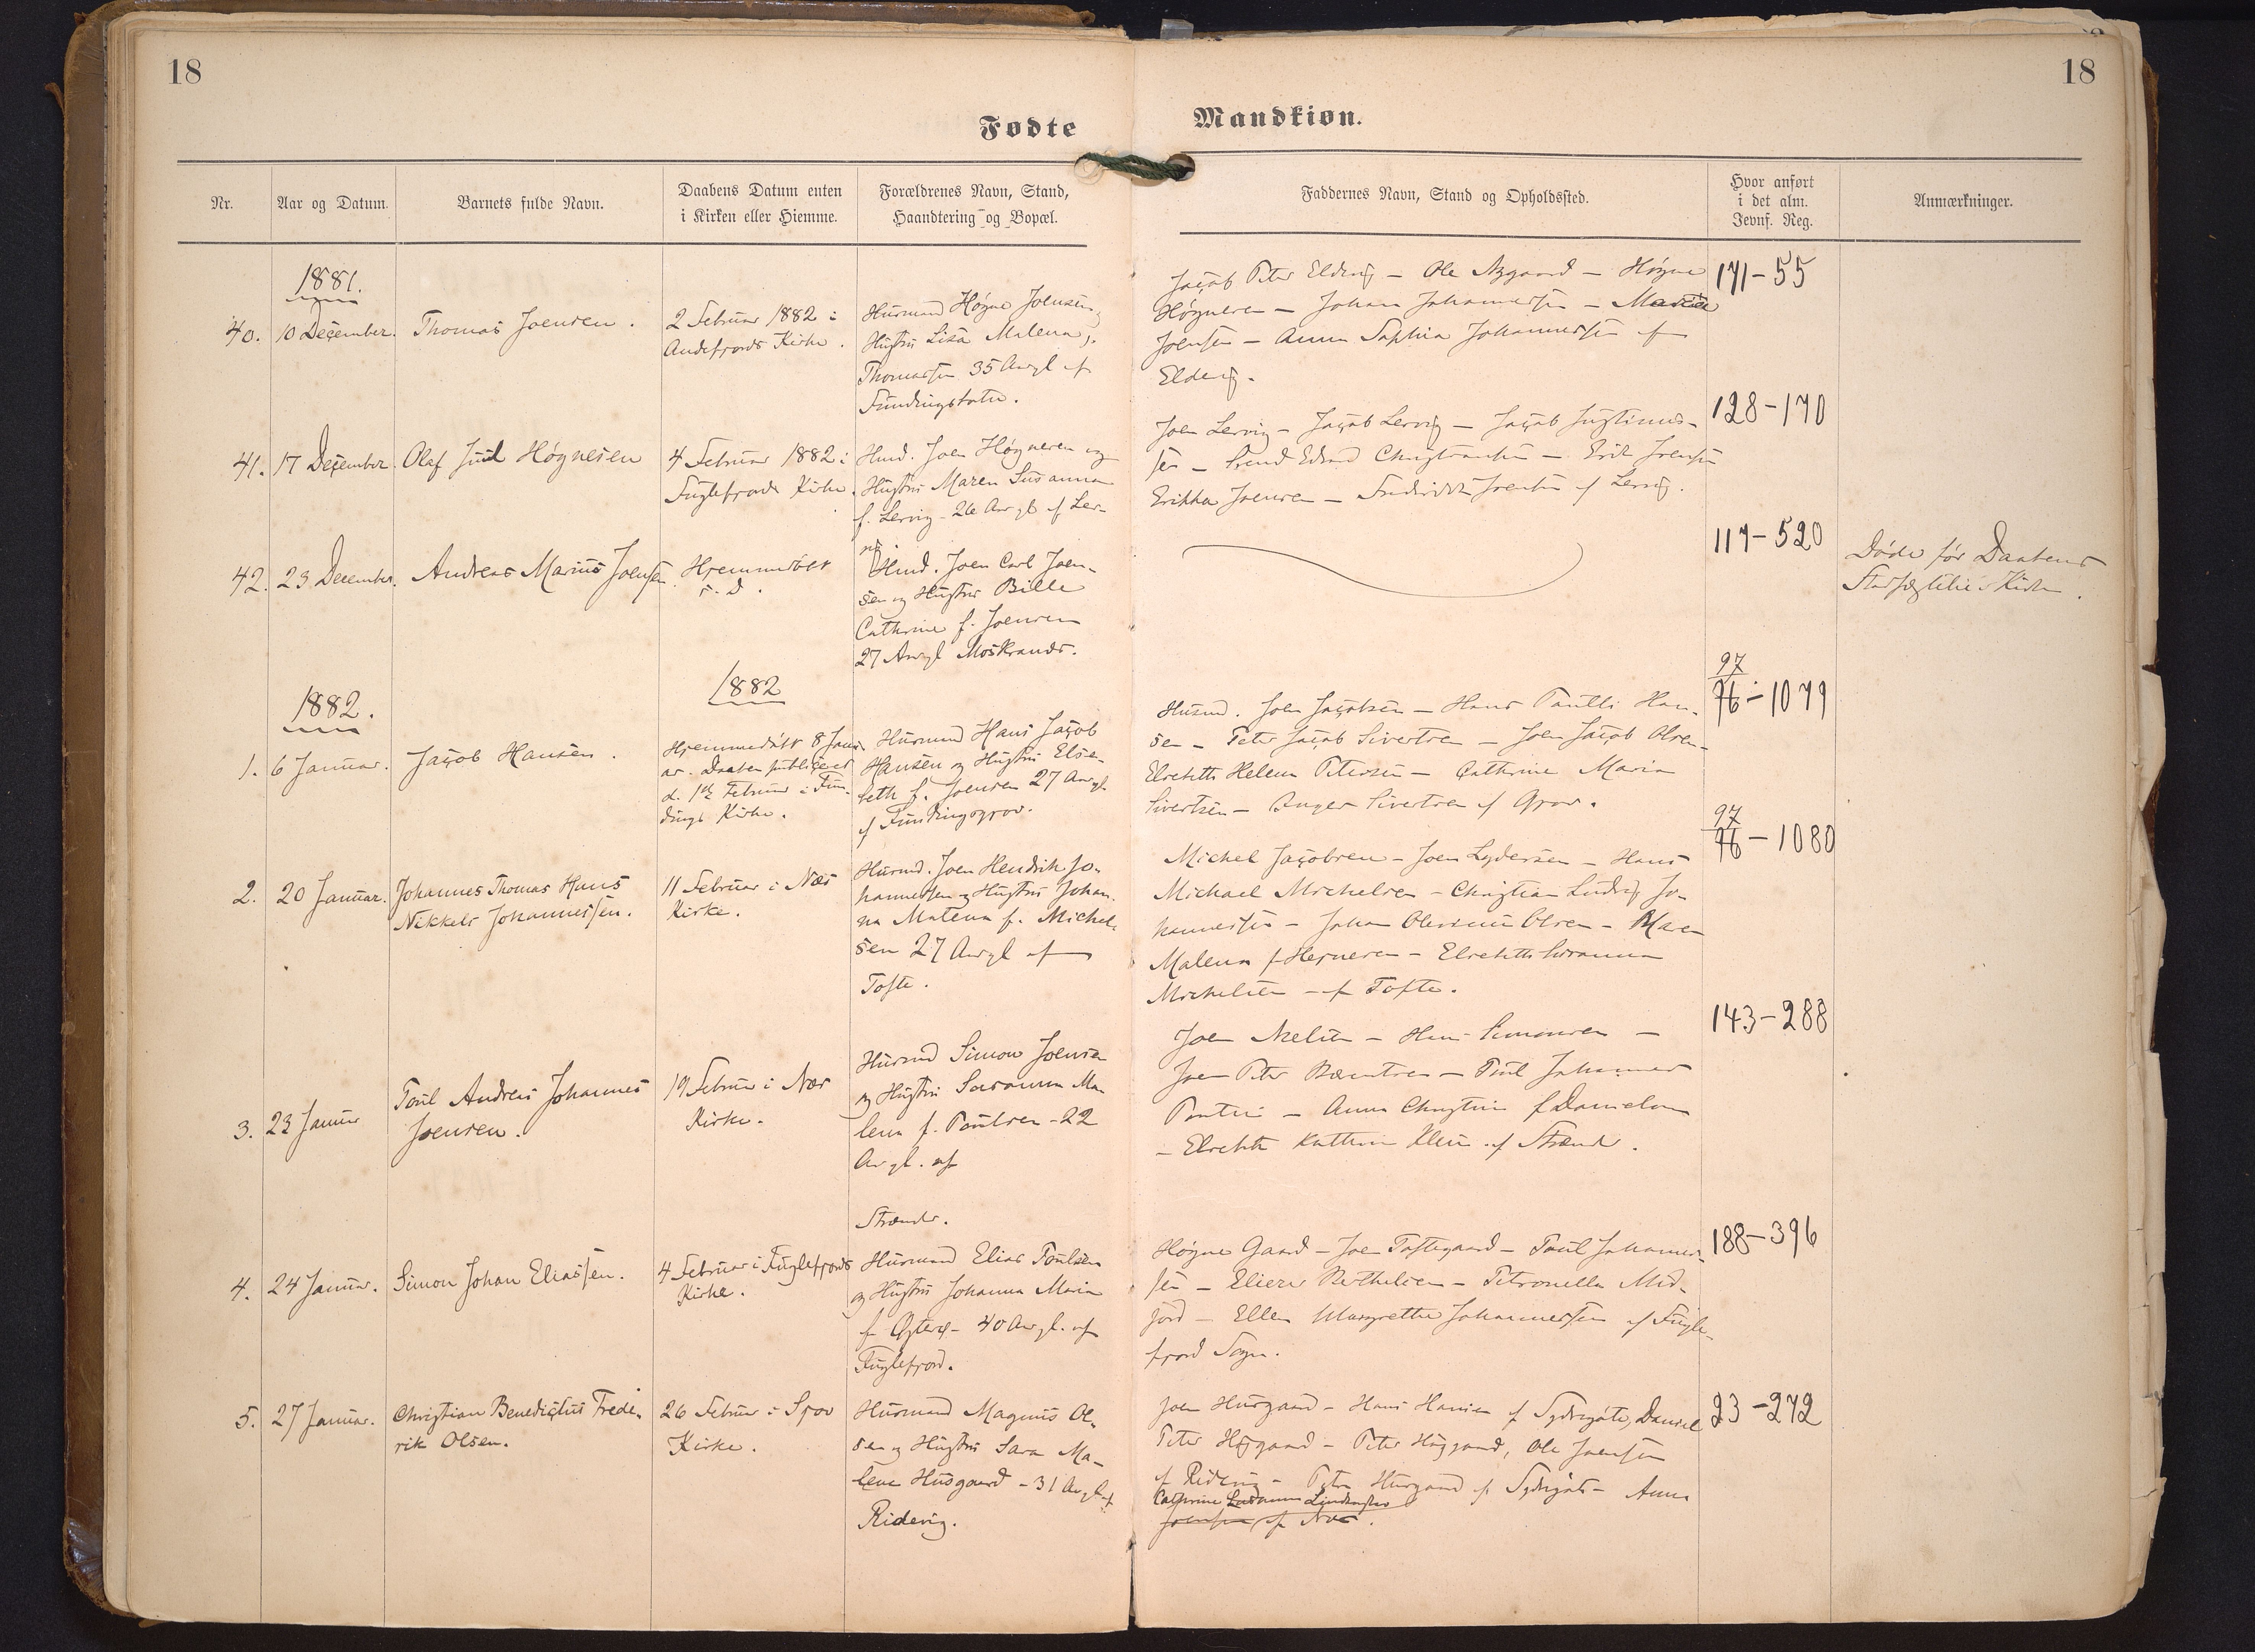 18
18
Fødte
Mandkiøn.
Nr.
Aar og Datum.
Barnets fulde Navn.
Daabens Datum enten
i Kirken eller Hiemme.
Forældrenes Navn, Stand,
Haandtering og Bopæl.
Faddernes Navn, Stand og Opholdssted.
Hvor anført
i det alm.
Jevnf. Reg.
Anmærkninger.
1881.
40. 10 December. Thomas Joensen.
2 Februar 1882 i
Andefjords Kirke.
Husmand Høgne Joensen,
Hustru Lisa Malena,
Thomassen 35 Aar gl af
Jacob Peter Eldevig - Ole Nygaard - Høgne
Høgnesen - Johan Johannessen -
Joensen - Anna Sophia Johannessen af
Eldevig.
171-55
41. 17 December Olaf Juul Høgnesen
4 Februar 1882 i
Fuglefjords Kirke.
Husmd. Joen Høgnesen og
Hustru Maren Susanna
f. Lervig - 26 Aar gl af Ler-
vig.
Joen Lervig - Jacob Lervig - Jacob Justinus-
sen - Christiansen - Erik Joensen
Erikka Joensen - Joensen af Lervig.
128-170
42. 23 December. Andreas Marius Joensen
Hjemmedøbt
s. D.
Husmd. Joen Carl Joen-
sen og Hustru Bille
Cathrine f. Joensen
27 Aar gl Moskranes.
117-520
Døde før Daabens
Stadfæstelse i Kirken.
1882.
1882
1. 6 Januar. Jacob Hansen.
Hjemmedøbt 8 Janu-
ar. Daaben publiceret
d. 1ste Februar i Fun-
dings Kirke.
Husmand Hans Jacob
Hansen og Hustru Else-
beth f. Joensen 27 Aar gl.
af Fundingsgjov.
Husmd. Joen Jacobsen - Hans Paulli Han-
sen - Peter Jacob Sivertsen - Joen Jacob Olsen -
Elsebeth Helena Petersen - Cathrine Maria
Sivertsen - Sivertsen af Gjov.
97
76-1079
2. 20 Januar. Johannes Thomas Hans
Nikkels Johannessen.
11 Februar i Næs
Kirke.
Husmd. Joen Hendrik Jo-
hannessen og Hustru Johan-
na Malena f. Michel-
sen 27 Aar gl af
Tofte.
Michel Jacobsen - Joen Lydersen - Hans
Michael Michelsen - Christian Ludvig Jo-
hannessen - Johan Olsen - Maren
Malena f Hejnesen - Elsebeth Susanna
Michelsen - af Tofte.
97
76-1080
3. 23 Januar
Poul Andreas Johannes
Joensen.
19 Februar i Næs
Kirke.
Husmd Simon Joensen
og Hustru Susanna Ma-
lena f. Poulsen - 22
Aar gl. af
Strænder.
Joen Nielsen - Hans Simonsen -
Joen Peter - Poul Johannes
Poulsen - Anna Christine f Danielsen
- Elsebeth Kathrine Klein af Strænder.
143-288
4. 24 Januar. Simon Johan Eliassen.
4 Februar i Fuglefjords
Kirke.
Husmand Elias Poulsen
og Hustru Johanna Maria
f. - 40 Aar gl. af
Fuglefjord.
Høgne Gaard - Joen Toftegaard - Poul Johannes-
sen - Berthelsen - Petronella Mid-
jord - Ellen Margrethe Johannessen af Fugle-
fjord Sogn.
188-396
5. 27 Januar. Christian Benedictus Frede-
rik Olsen.
26 Februar i Gjov
Kirke.
Husmand Magnus Ol-
sen og Hustru Sara Ma-
lena Husgaard - 31 Aar gl af
Ridevig.
Joen Husgaard - Hans Hansen af Sydregøte, Daniel
Peter Højgaard - Peter Højgaard, Ole Joensen
af Ridevig - Husgaard af Sydregøte - Anna
Cathrine
Joensen af Næs.
23-272